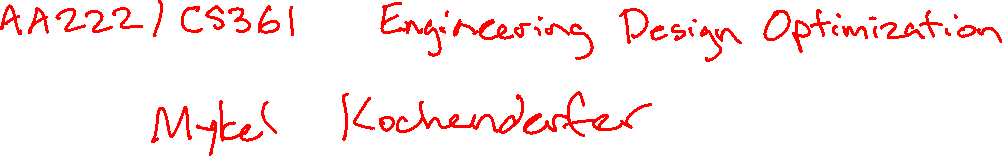 AA222/CS361 Engineering Design Optimization
Mykel Kochenderfer